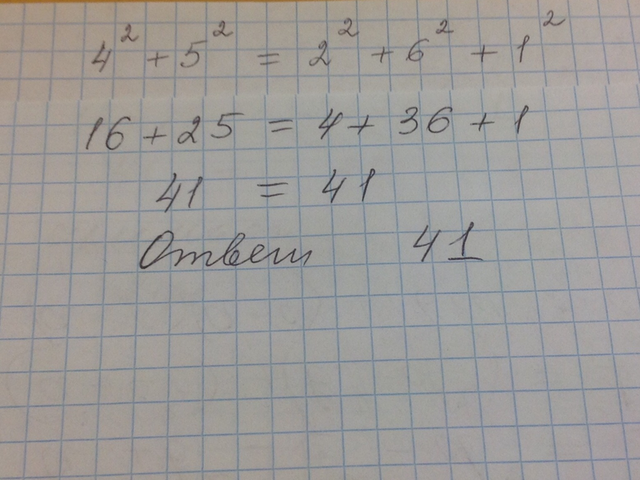 4² + 5² = 2² + 6² + 1²
16 + 25 = 4 + 36 + 1
41 = 41
Ответ 41